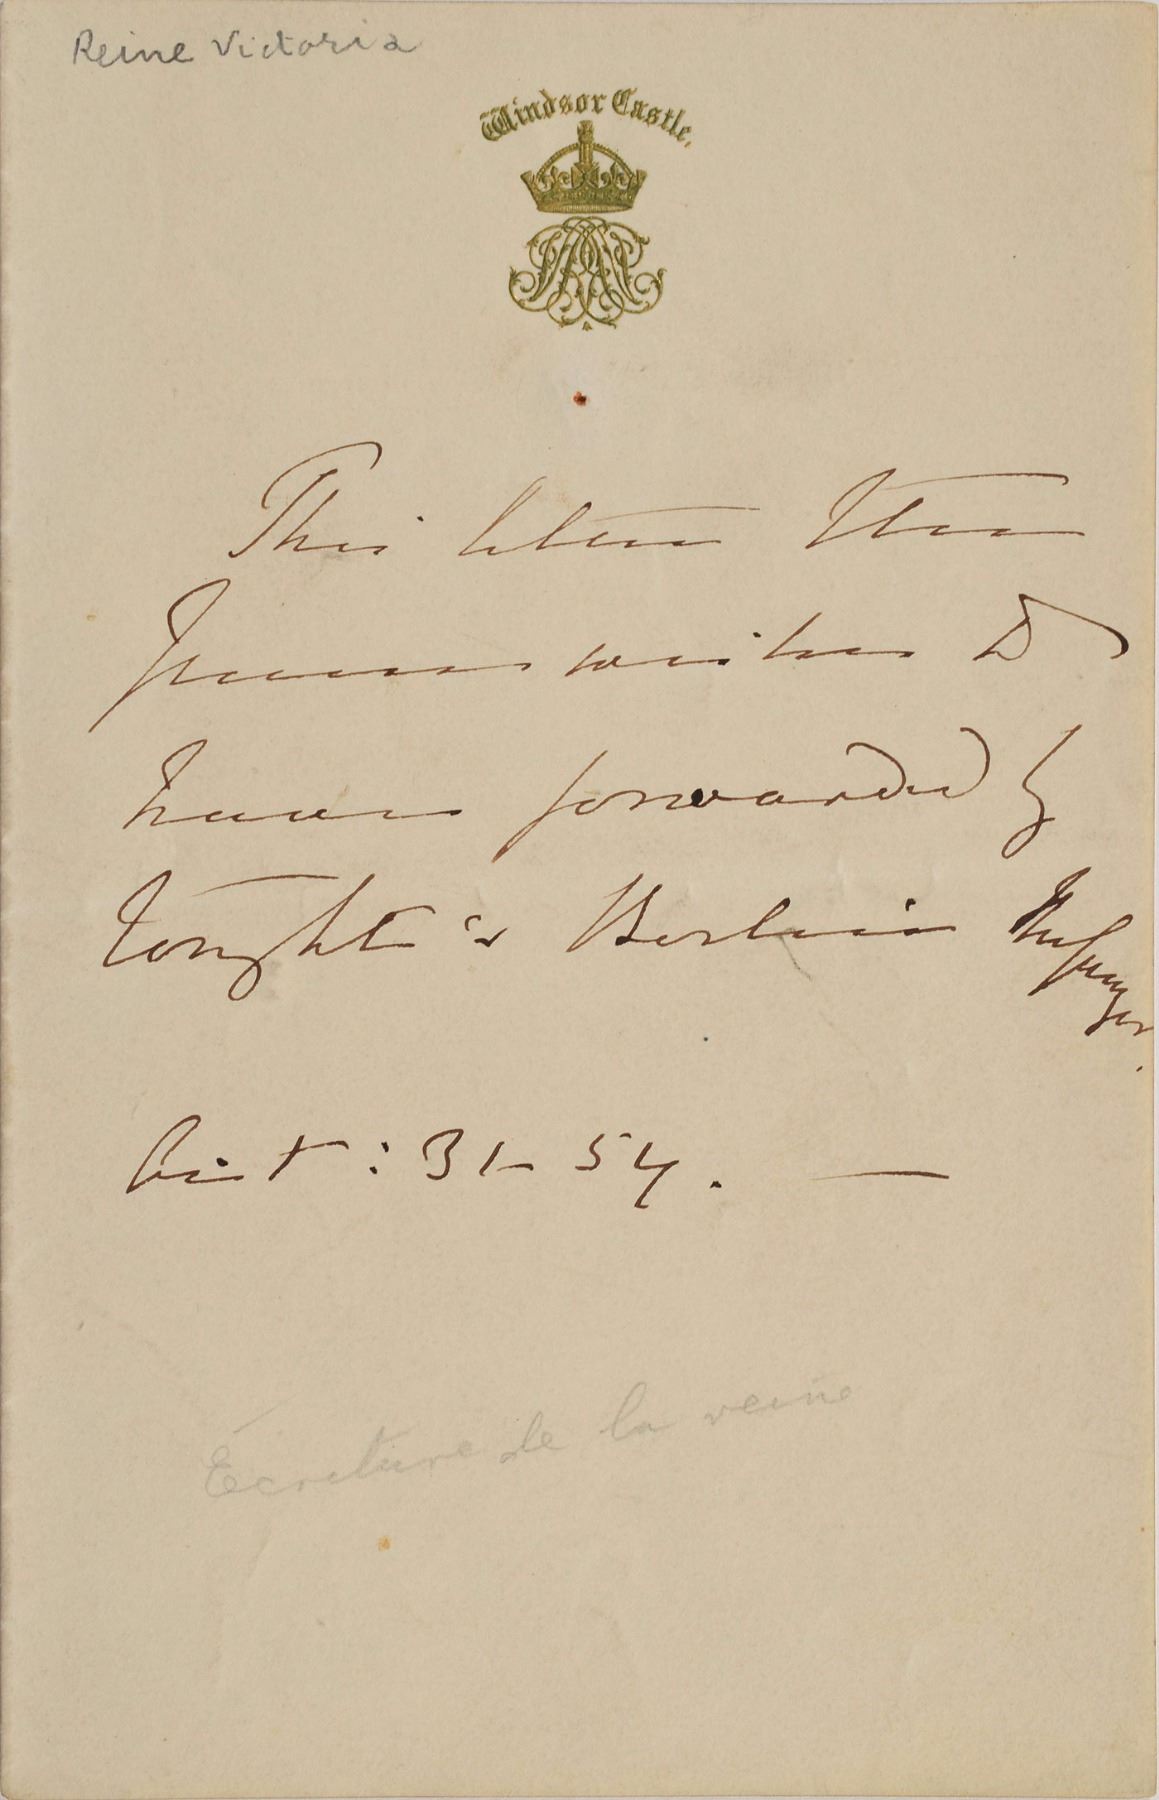 Reine Victoria
Windsor Castle.
This letter the
Queen wishes to
have forwarded by
tonight's Berlin Messenger.
Oct: 31 - 54. —
Écriture de la reine